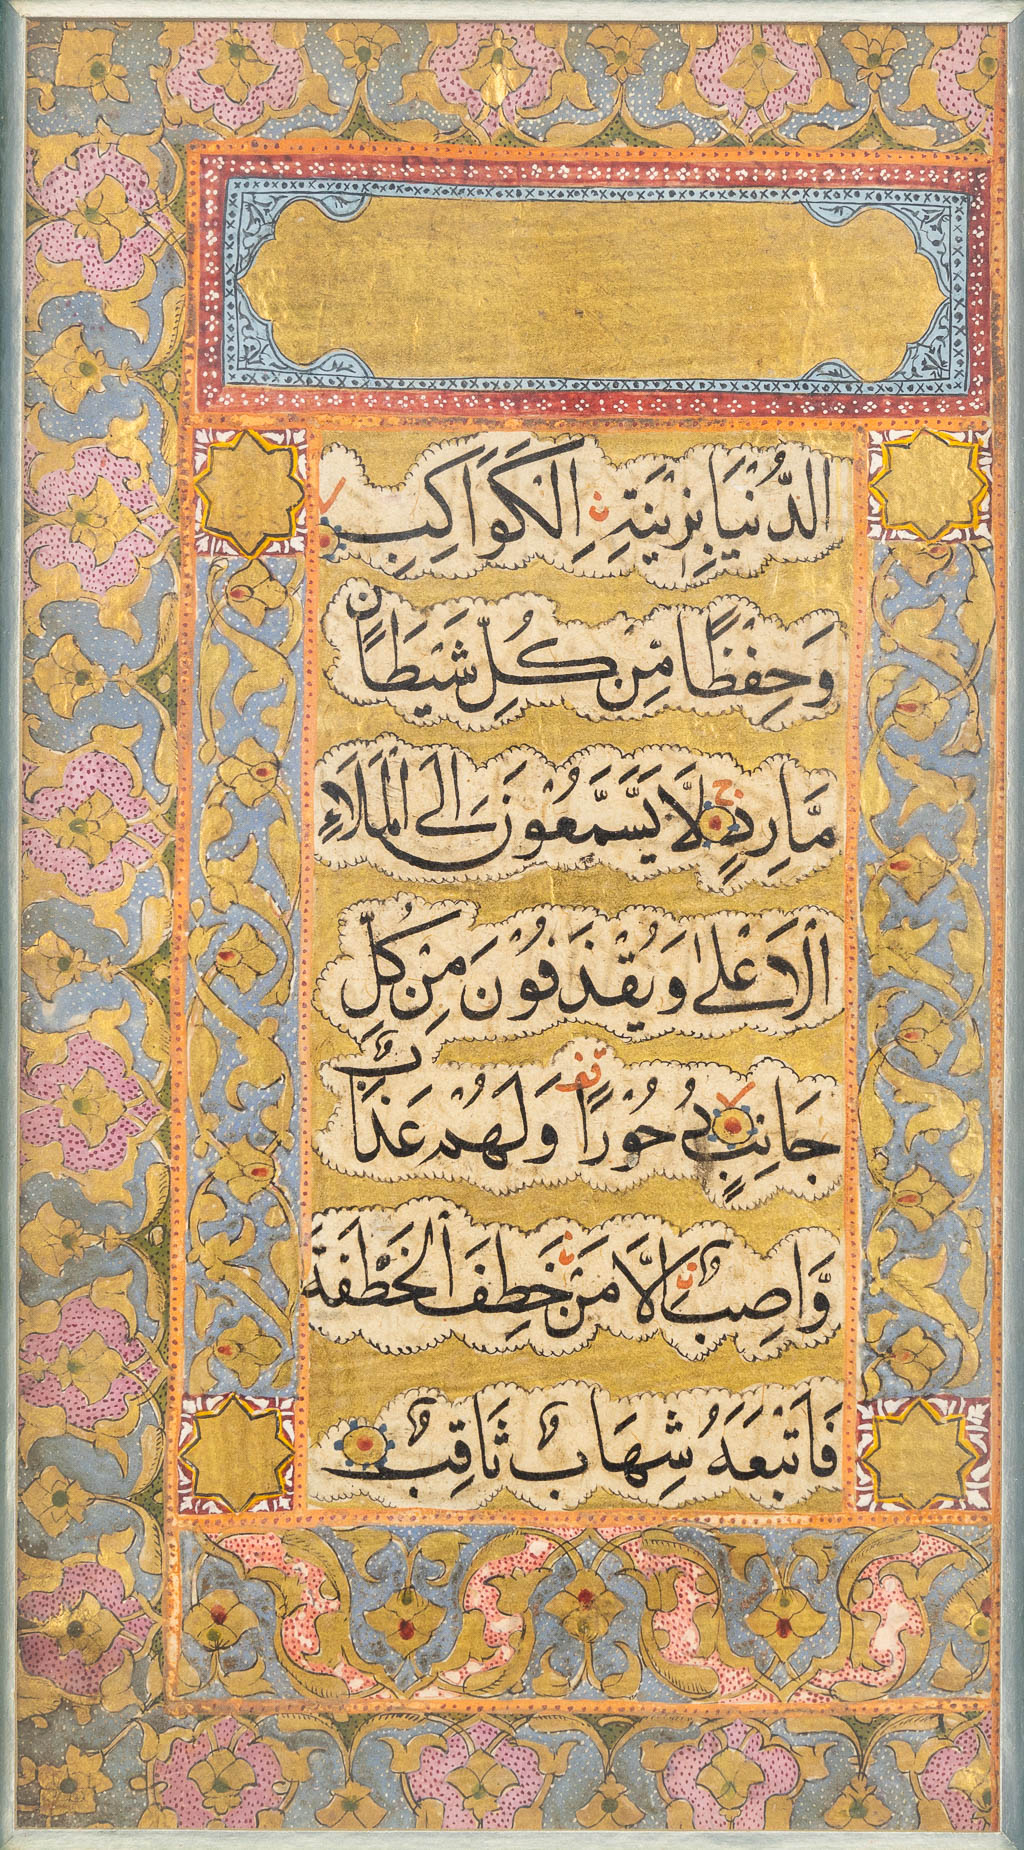 الدُّنْيَا بِزِينَةِ ۨ الْكَوَاكِبِ
وَحِفْظًا مِّنْ كُلِّ شَيْطَانٍ
مَّارِدٍ ج لَّا يَسَّمَّعُونَ اِلَى الْمَلَاءِ
الْاَعْلٰى وَيُقْذَفُونَ مِنْ كُلِّ
جَانِبٍ دُحُورًا قف وَلَهُمْ عَذَابٌ
وَّاصِبٌ اِلَّا مَنْ خَطِفَ الْخَطْفَةَ
فَاَتْبَعَهُ شِهَابٌ ثَاقِبٌ